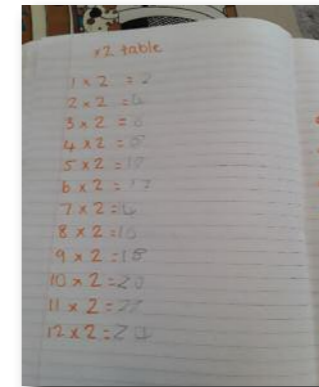 x2 table
1 x 2 = 2
2 x 2 = 4
3 x 2 = 6
4 x 2 = 8
5 x 2 = 10
6 x 2 = 12
7 x 2 = 14
8 x 2 = 16
9 x 2 = 18
10 x 2 = 20
11 x 2 = 22
12 x 2 = 24